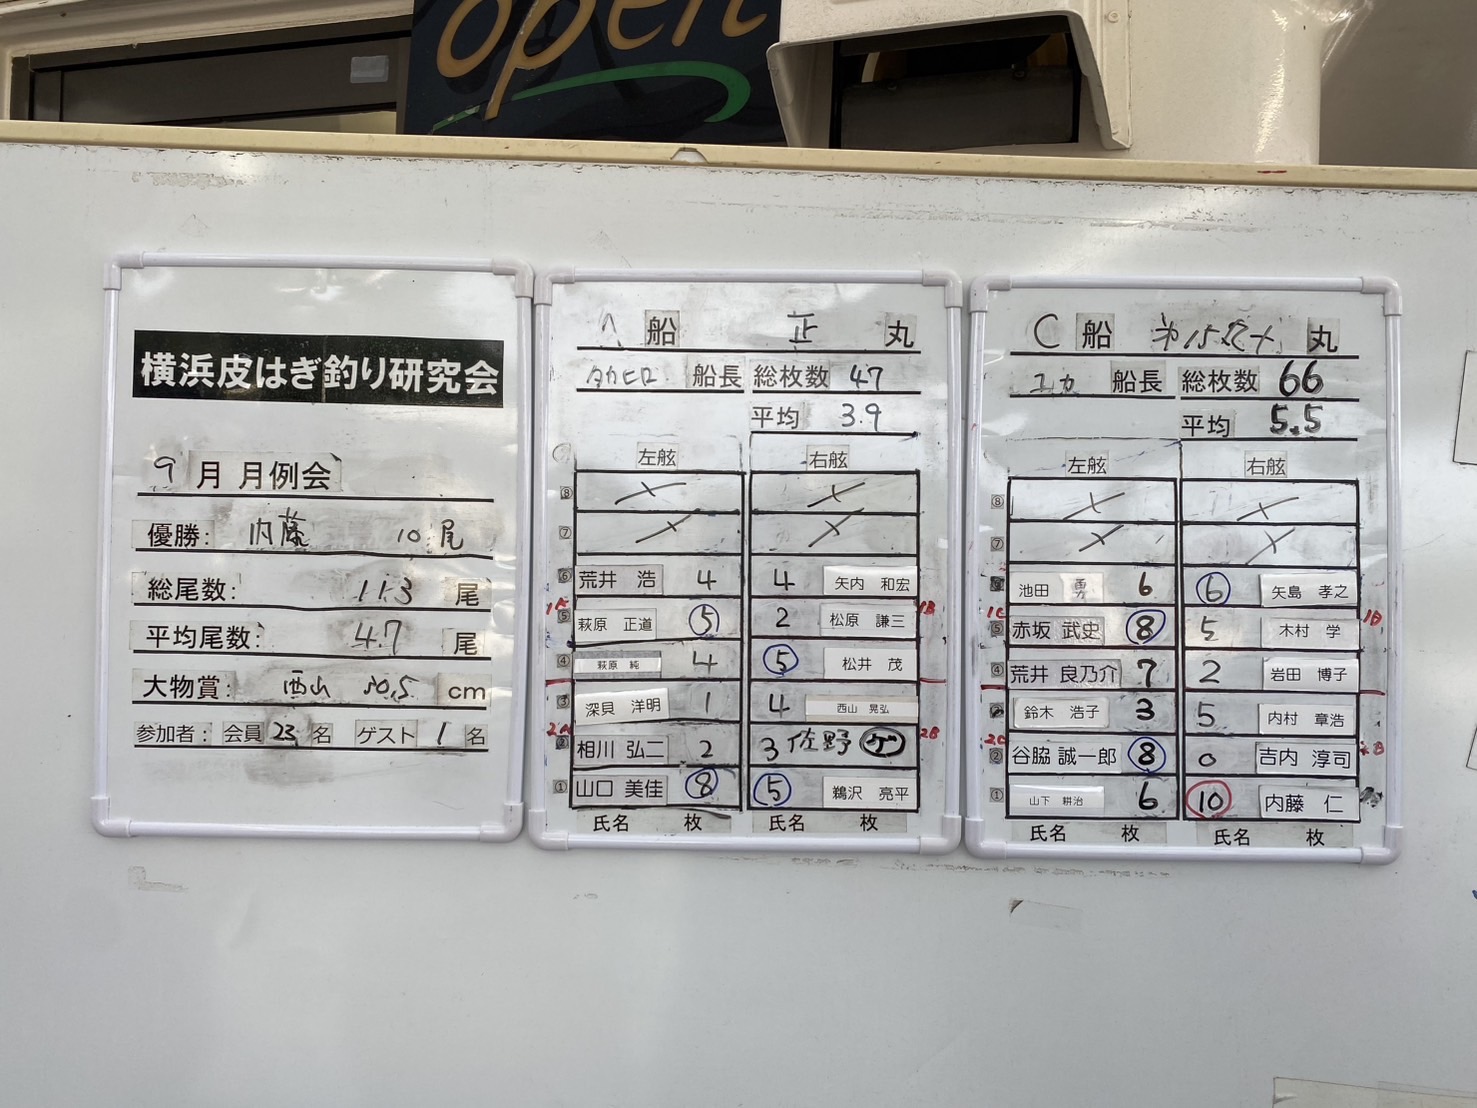 open
横浜皮はぎ釣り研究会
9月 月例会
優勝: 内藤 10尾
総尾数: 113 尾
平均尾数: 4.7 尾
大物賞: 西山 30.5 cm
参加者: 会員 23名 ゲスト 1名
船 正 丸
タカヒロ 船長 総枚数 47
平均 3.9
左舷 右舷
⑧
⑦
⑥ 荒井 浩 4 4 矢内 和宏
1A ⑤ 萩原 正道 5 2 松原 謙三 1B
④ 萩原 純 4 5 松井 茂
③ 深貝 洋明 1 4 西山 晃弘
2A ② 相川 弘二 2 3 佐野 ゲ 2B
① 山口 美佳 8 5 鵜沢 亮平
氏名 枚 氏名 枚
C 船 丸
ユカ 船長 総枚数 66
平均 5.5
左舷 右舷
⑧
⑦
池田 勇 6 6 矢島 孝之
1C ⑤ 赤坂 武史 8 5 木村 学 1D
④ 荒井 良乃介 7 2 岩田 博子
鈴木 浩子 3 5 内村 章浩
2C ② 谷脇 誠一郎 8 0 吉内 淳司
① 山下 耕治 6 10 内藤 仁
氏名 枚 氏名 枚